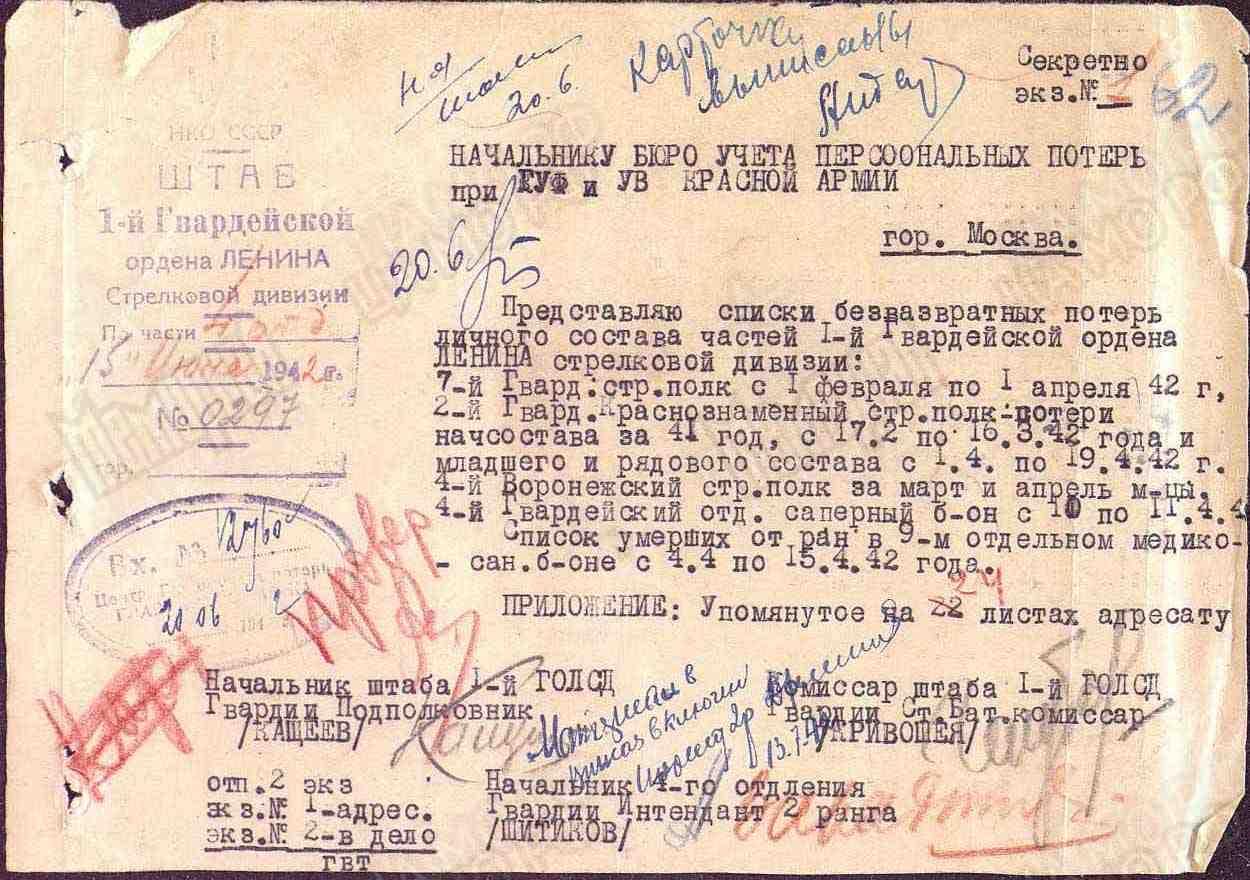 Карточки
выписаны
20.6.
Секретно
экз.№ 1
62
НКО СССР
ШТАБ
1-й Гвардейской
ордена ЛЕНИНА
Стрелковой дивизии
По части 4 отд
"15" Июня 1942 г.
№ 0297
НАЧАЛЬНИКУ БЮРО УЧЕТА ПЕРСООНАЛЬНЫХ ПОТЕРЬ
при ГУФ и УВ КРАСНОЙ АРМИИ
гор. Москва.
20.6
Представляю списки безвазвратных потерь
личного состава частей I-й Гвардейской ордена
ЛЕНИНА стрелковой дивизии:
7-й Гвард.стр.полк с I февраля по I апреля 42 г,
2-й Гвард.Краснознаменный стр.полк-потери
начсостава за 41 год, с 17.2 по 16.3.42 года и
младшего и рядового состава с 1.4. по 19.4.42 г.
4-й Воронежский стр.полк за март и апрель м-цы.
4-й Гвардейский отд. саперный б-он с 10 по 11.4.4
Список умерших от ран в 9-м отдельном медико-
- сан.б-оне с 4.4 по 15.4.42 года.
ПРИЛОЖЕНИЕ: Упомянутое на 22 24 листах адресату
Вх. №3 12760
20 06
Провер
Начальник штаба I-й ГОЛСД
Гвардии Подполковник
/КАЩЕЕВ/
Комиссар штаба I-й ГОЛСД
Гвардии Ст.Бат.комиссар
/КРИВОШЕЯ/
отп.2 экз
экз.№ 1-адрес.
экз.№ 2-в дело
гвт
Начальник 4-го отделения
Гвардии Интендант 2 ранга
/ШИТИКОВ/